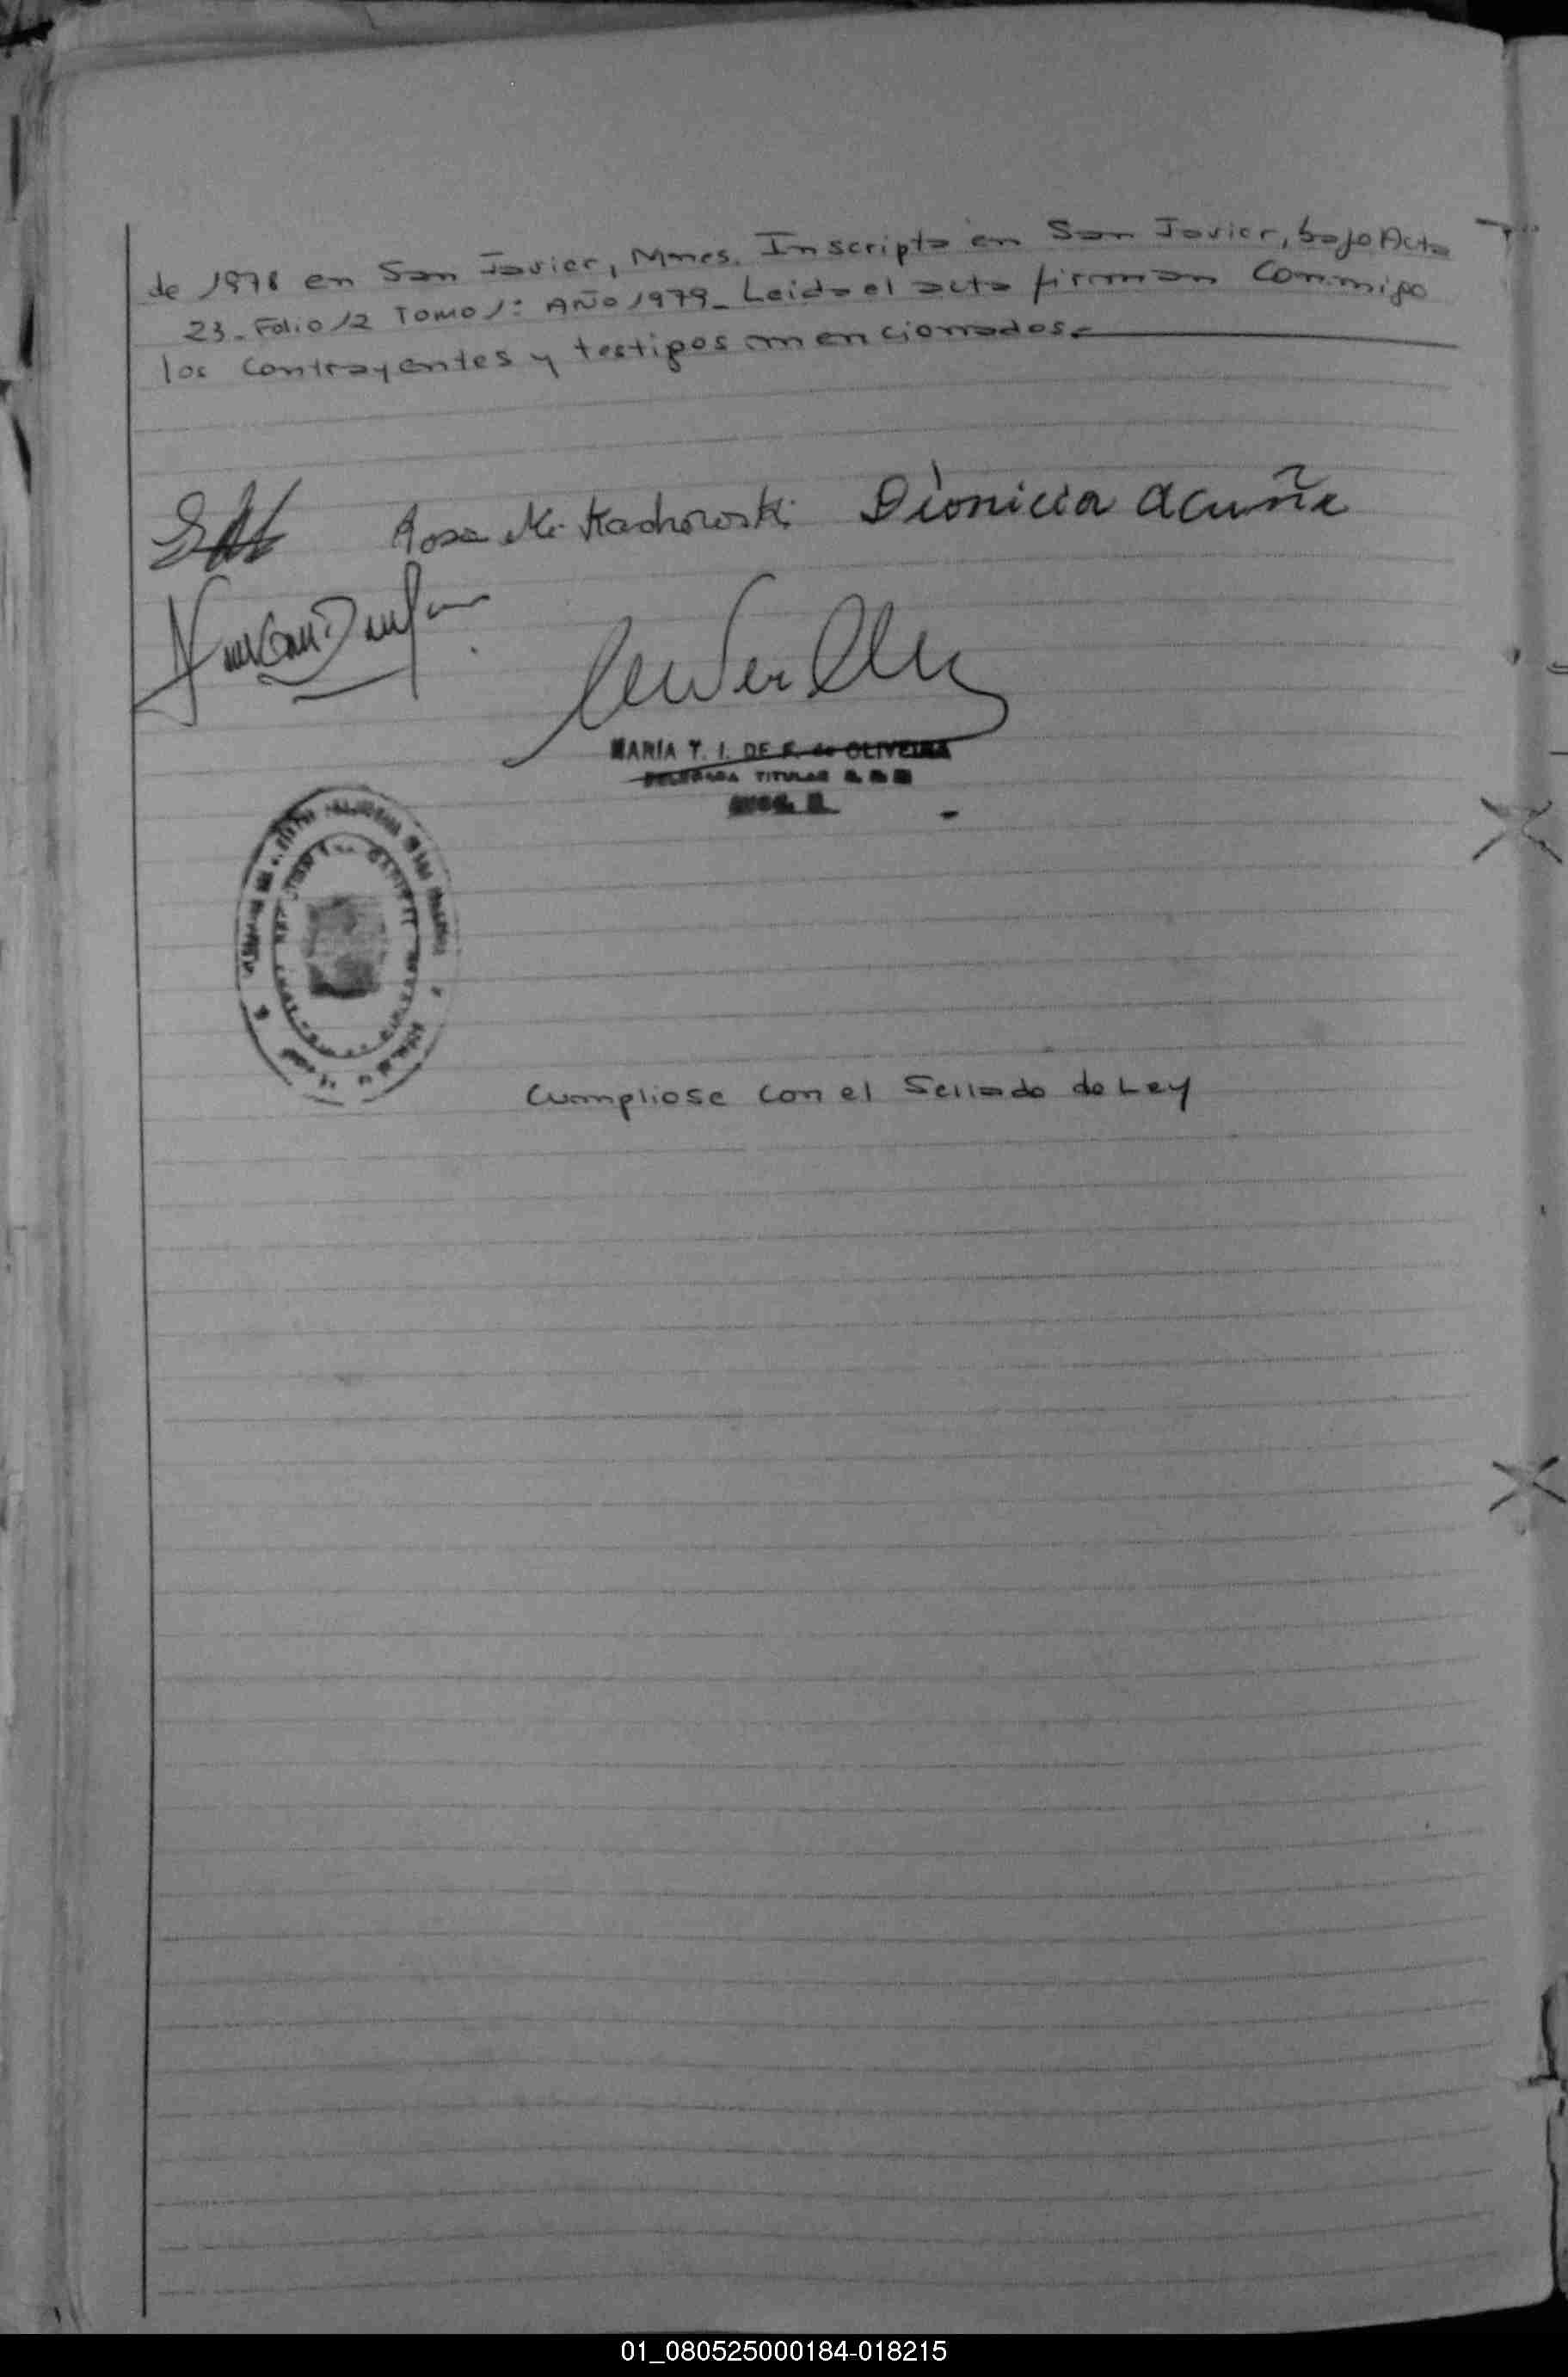 de 1978 en San Javier, Mnes. Inscripta en San Javier, bajo Acta
23. Folio 12 Tomo 1: Año 1979_ Leida el acta firman conmigo
los contrayentes y testigos mencionados.
Rosa M. Kachorowski Dionicia Acuña
MARIA T. I. DE F. de OLIVEIRA
DELEGADA TITULAR
Cumpliose con el Sellado de Ley
01_080525000184-018215